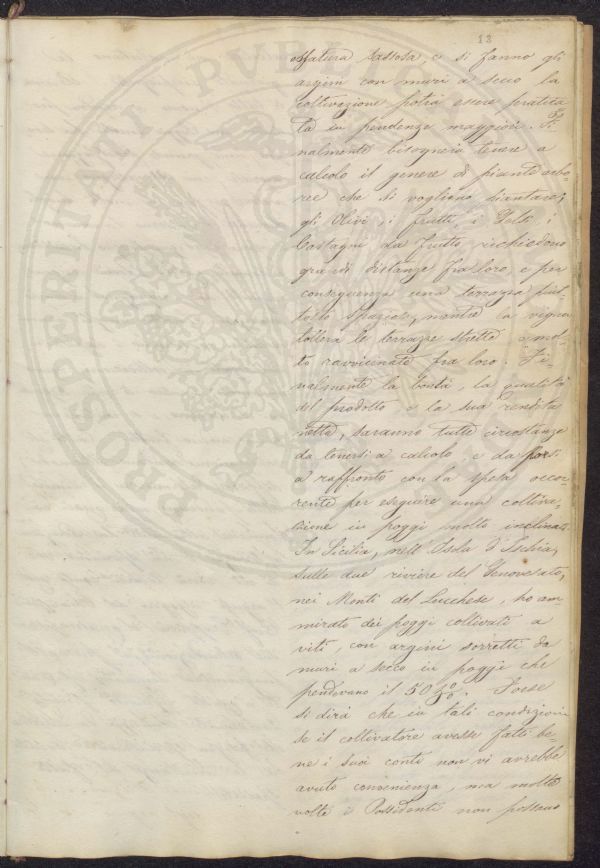 13
ossatura sassosa, e si fanno gli
argini con muri a secco la
coltivazione potrà essere pratica
ta in pendenze maggiori. Fi-
nalmente bisogneria tenere a
calcolo il genere di piante arbo-
ree che si vogliono piantare;
gli Olivi, i frutti, i Gelsi, i
Castagni da frutto richiedono
grandi distanze fra loro, e per
conseguenza una terrazza piut-
tosto spaziosa, mentre la vigna
tollera le terrazze strette e mol-
to ravvicinate fra loro. Fi-
nalmente la bontà, la quantità
del prodotto e la sua rendita
netta, saranno tutte circostanze
da tenersi a calcolo, e da porsi
a raffronto con la spesa occor-
rente per eseguire una coltiva-
zione in poggi molto inclinati.
In Sicilia, nell'Isola d'Ischia,
sulle due riviere del Genovesato,
nei Monti del Lucchese, ho am-
mirato dei poggi coltivati a
viti, con argini sorretti da
muri a secco in poggi che
pendevano il 50 %. Forse
si dirà che in tali condizioni
se il coltivatore avesse fatti be-
ne i suoi conti non vi avrebbe
avuto convenienza, ma molte
volte i Possidenti non possono
PROSPERITATI PUBL